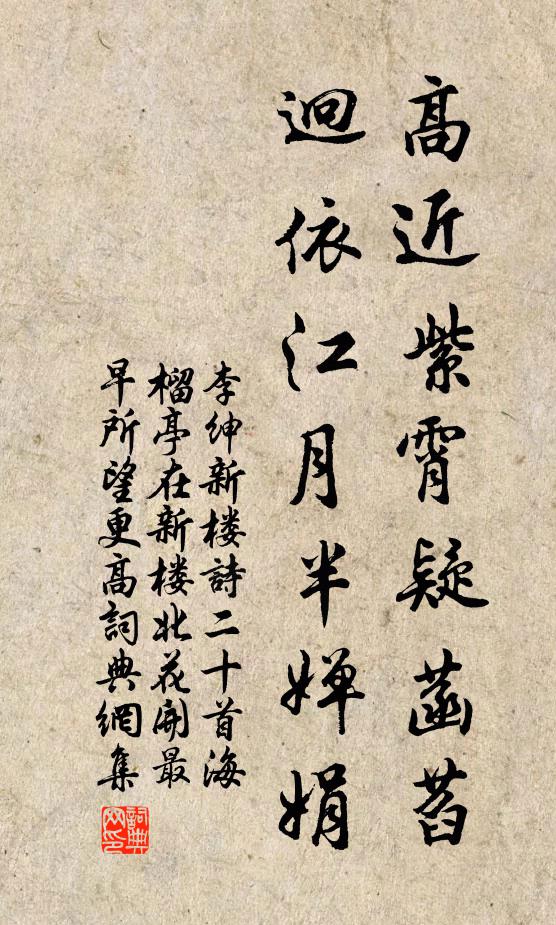 高近紫霄疑菡萏
迥依江月半嬋娟
李紳新楼詩二十首海
榴亭在新楼北花開最
早所望更高詞典網集
詞典
网印